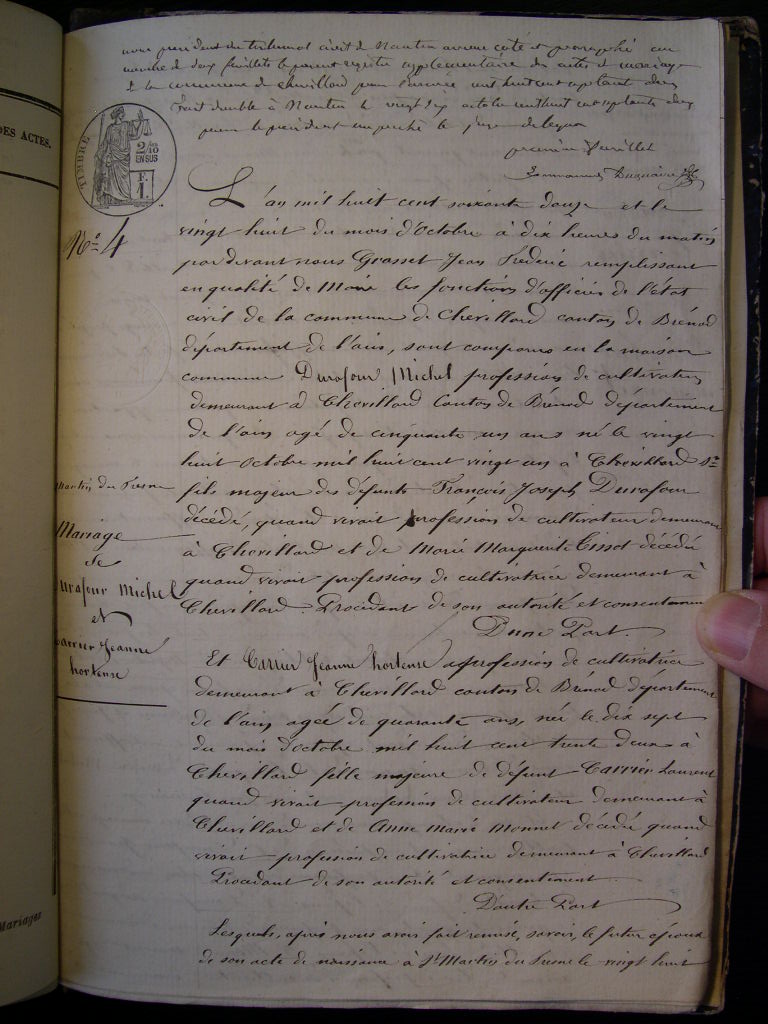 DES ACTES.
nous président du tribunal civil de Nantua avons coté et paraphé au
nombre de deux feuillets le présent registre supplémentaire des actes de mariage
de la commune de Chevillard pour l'année mil huit cent soixante douze
fait double à Nantua le vingt six octobre mil huit cent soixante douze
pour le président empêché le juge
TIMBRE
2/10
EN SUS
F.
1.
L'an mil huit cent soixante douze et le
No 4
vingt huit du mois d'Octobre à dix heures du matin
par devant nous Grosset Jean Frédéric remplissant
en qualité de Maire les fonctions d'officier de l'état
civil de la commune de Chevillard canton de Brénod
département de l'ain, sont comparus en la maison
commune Durafour Michel profession de cultivateur
demeurant à Chevillard Canton de Brénod département
de l'ain agé de cinquante un ans né le vingt
huit Octobre mil huit cent vingt un à Chevillard St
Martin du Fresne
fils majeur des défunts François Joseph Durafour
décédé, quand vivait profession de cultivateur demeurant
à Chevillard et de Marie Marguerite Tissot décédée
quand vivait profession de cultivatrice demeurant à
Chevillard. Procédant de son autorité et consentement
D'une Part.
Mariage
de
Durafour Michel
et
Carrier Jeanne
hortense
Et Carrier Jeanne hortense a profession de cultivatrice
demeurant à Chevillard canton de Brénod département
de l'ain agée de quarante ans, née le dix sept
du mois d'octobre mil huit cent trente deux à
Chevillard fille majeure de défunt Carrier Laurent
quand vivait profession de cultivateur demeurant à
Chevillard et de Anne Marie Monnet décédée quand
vivait profession de cultivatrice demeurant à Chevillard
Procédant de son autorité et consentement
D'autre Part
Lesquels, après nous avoir fait remise, savoir, le futur époux
de son acte de naissance à St Martin du Fresne le vingt huit
Mariages